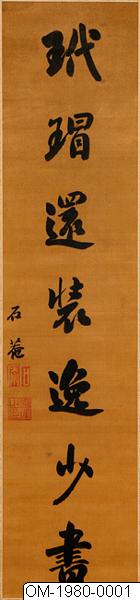 玳瑁還裝逸少書
石菴
OM-1980-0001